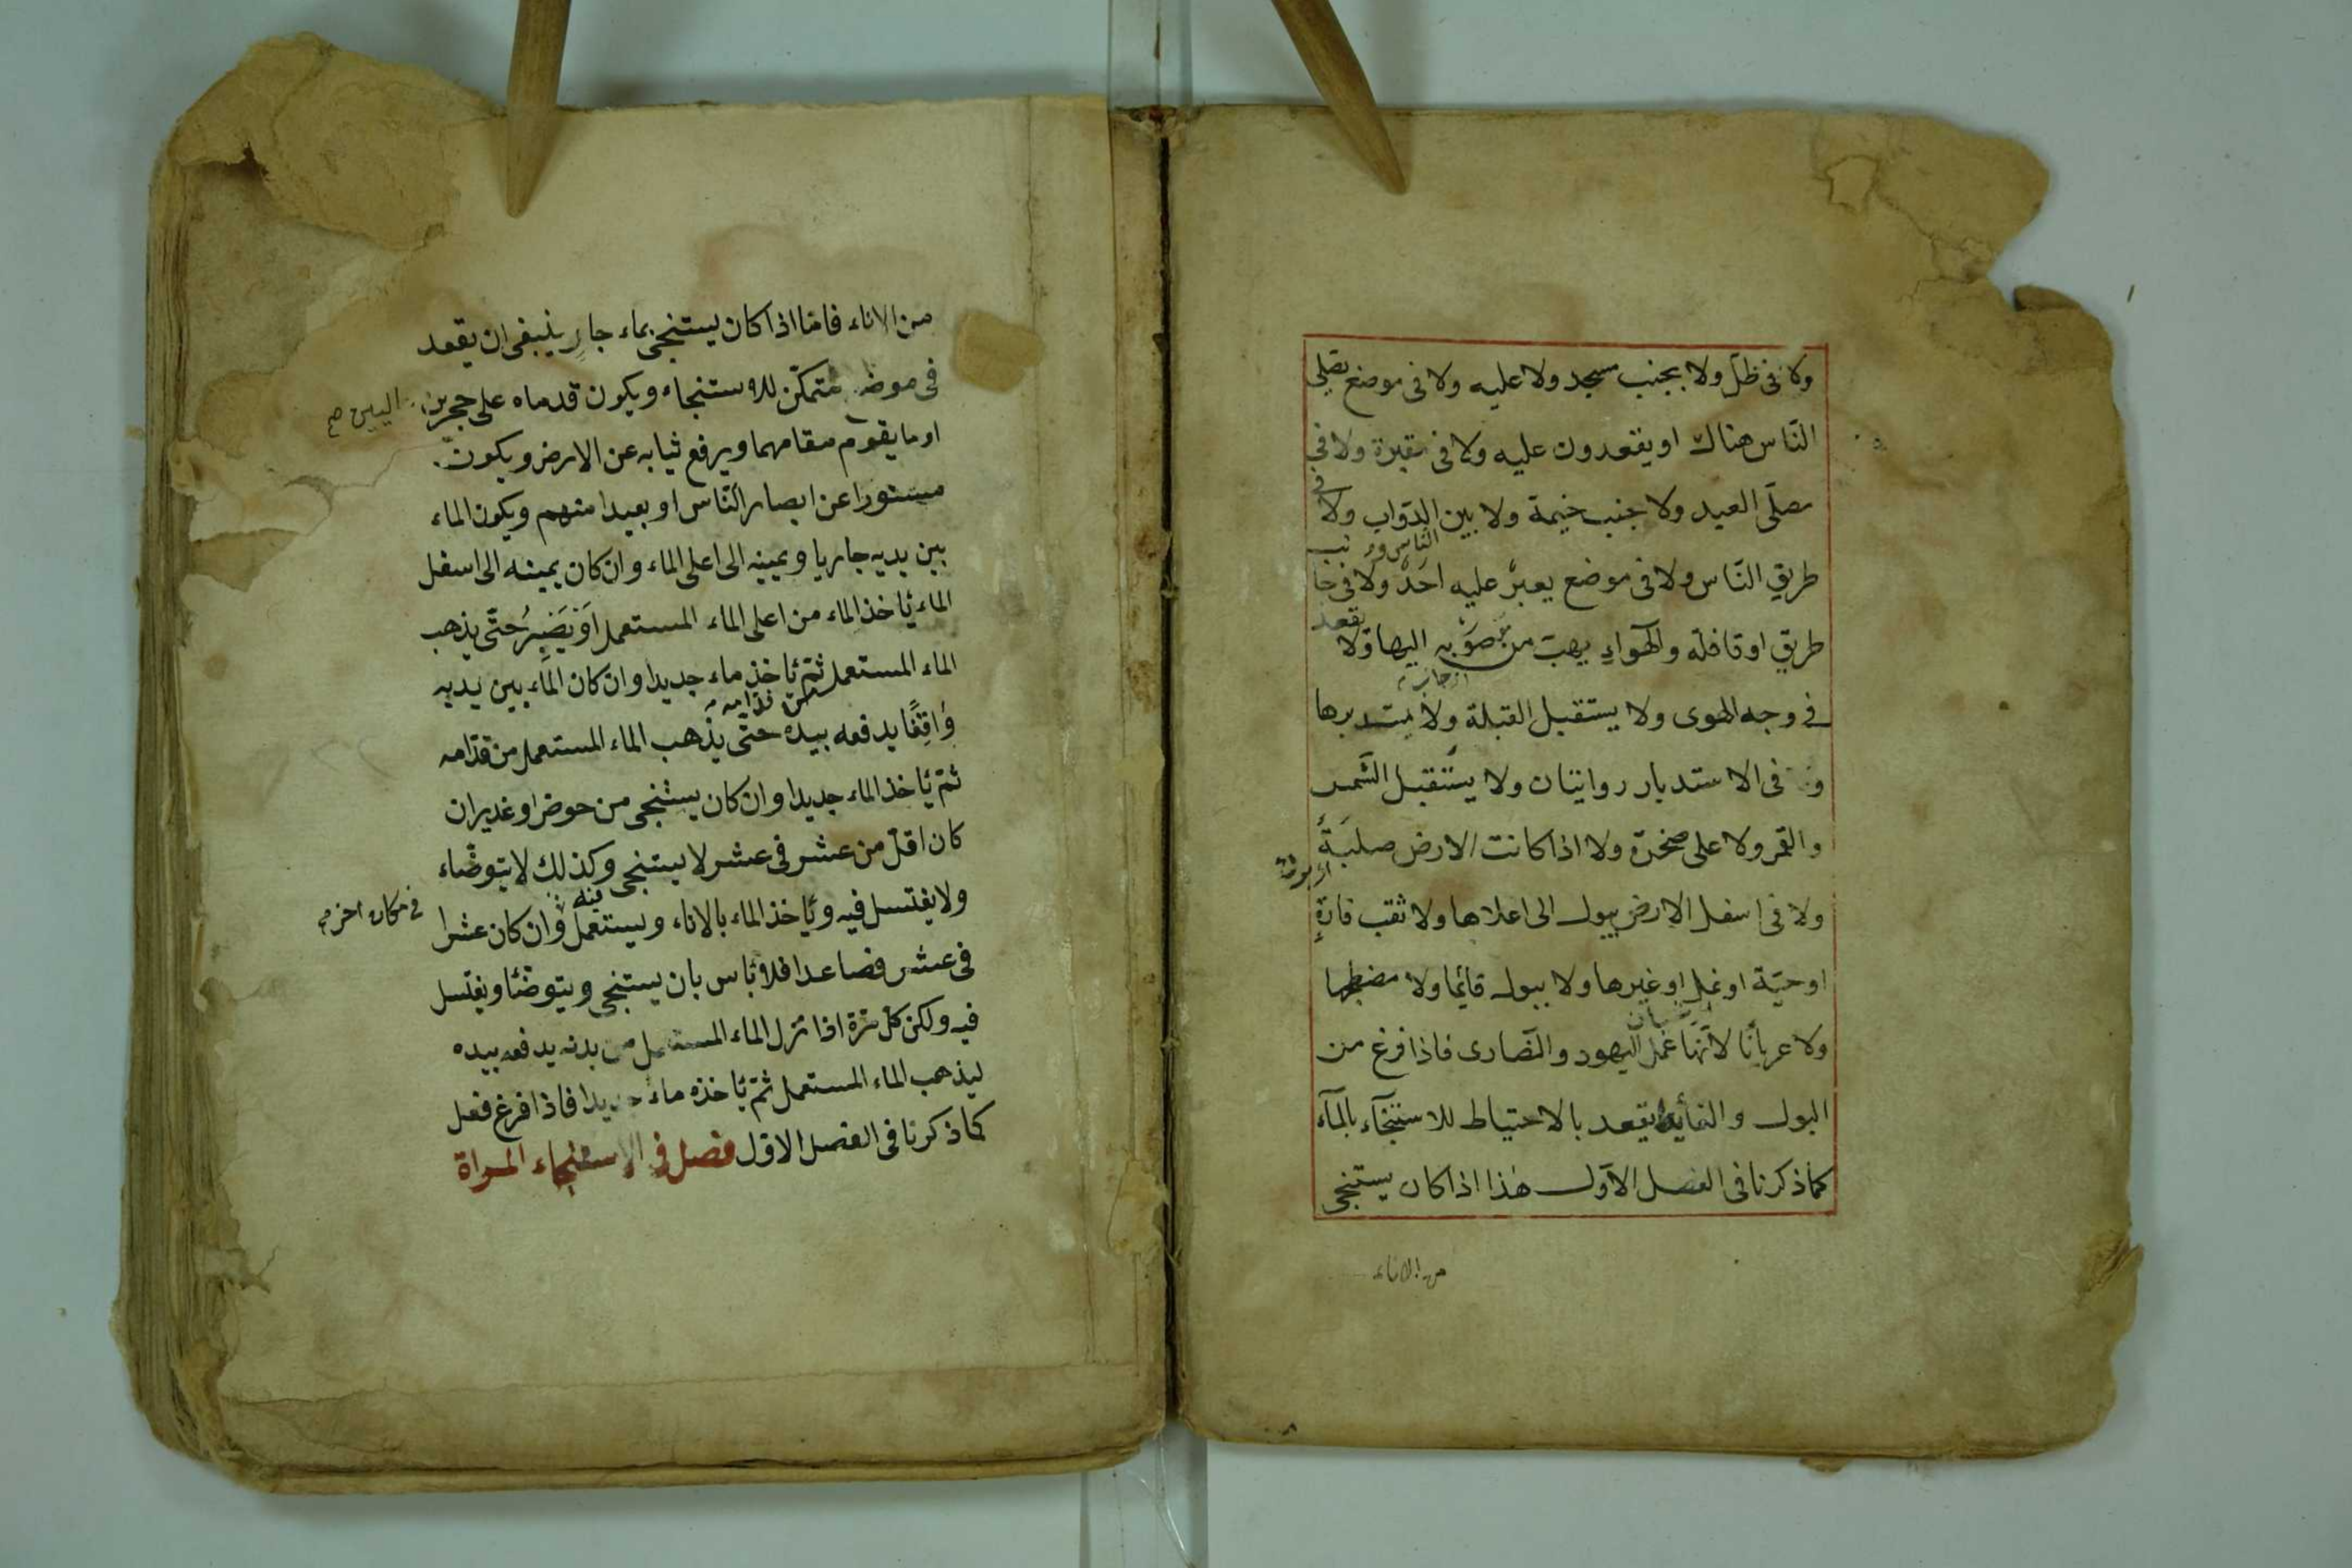 ولا فى ظلّ ولا بجنب مسجد ولا عليه ولا فى موضع يصلى
النّاس هناك او يقعدون عليه ولا فى مقبرة ولا فى
مصلّى العيد ولا جنب خيمة ولا بين الدّواب ولا فى
طريق النّاس ولا فى موضع يعبر عليه احدٌ ولا فى جا
نب
طريق او قافلة والهواء يهبّ من صوبه اليها ولا
يقعد
فى وجه الهوى ولا يستقبل القبلة ولا يستدبرها
و فى الاستدبار روايتان ولا يستقبل الشّمس
والقمر ولا على صخرة ولا اذا كانت الارض صلبةً
ولا فى اسفل الارض يبول الى اعلاها ولا ثقب فارةٍ
او حيّة او نمل او غيرها ولا يبول قائما ولا مضطجعا
ولا عريانًا لانّها عمل اليهود والنّصارى فاذا فرغ من
البول والغائط يقعد بالاحتياط للاستنجآء بالمآء
كما ذكرنا فى الفصل الاوّل هذا اذا كان يستنجى
من الاناء
من الاناء فامّا اذا كان يستنجى بماء جارٍ ينبغى ان يقعد
فى موضع متمكّن للاستنجاء ويكون قدماه على حجرين
او ما يقوم مقامهما ويرفع ثيابه عن الارض ويكون
مستورا عن ابصار النّاس او بعيدا منهم ويكون الماء
بين يديه جاريا ويمينه الى اعلى الماء وان كان يمينه الى اسفل
الماء ياخذ الماء من اعلى الماء المستعمل او يصبر حتّى يذهب
الماء المستعمل ثمّ ياخذ ماء جديدا وان كان الماء بين يديه
واقفًا يدفعه بيده حتّى يذهب الماء المستعمل من قدّامه
ثمّ ياخذ الماء جديدا وان كان يستنجى من حوض او غدير ان
كان اقلّ من عشر فى عشر لا يستنجى وكذلك لا يتوضّاء
فيه
ولا يغتسل فيه وياخذ الماء بالاناء ويستعمل وان كان عشرا
فى مكان اخر
فى عشر فصاعدا فلا باس بان يستنجى ويتوضّا ويغتسل
فيه ولكن كلّ مرّة اذا نزل الماء المستعمل من بدنه يدفعه بيده
ليذهب الماء المستعمل ثمّ ياخذه ماء جديدا فاذا فرغ فعل
كما ذكرنا فى الفصل الاوّل فصل فى الاستنجاء المراة